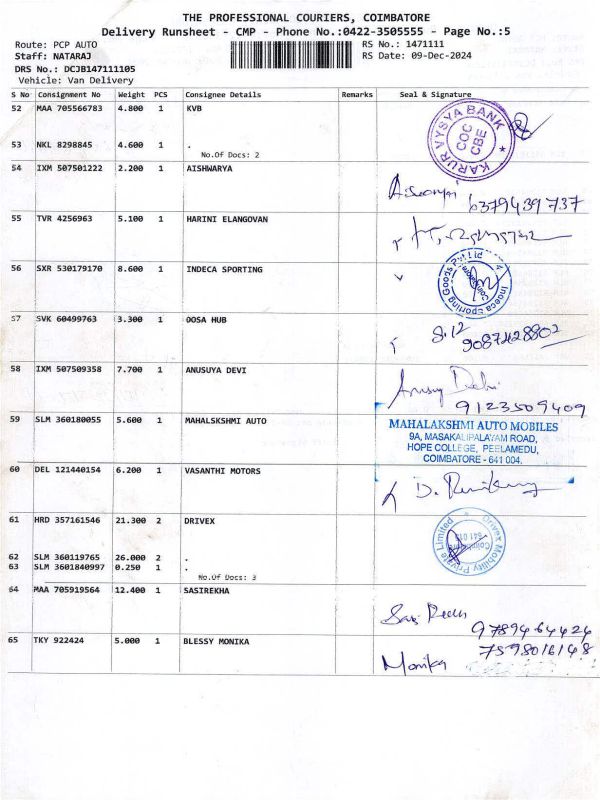 THE PROFESSIONAL COURIERS, COIMBATORE
Delivery Runsheet - CMP - Phone No.:0422-3505555 - Page No.:5
Route: PCP AUTO RS No.: 1471111
Staff: NATARAJ RS Date: 09-Dec-2024
DRS No.: DCJB147111105
Vehicle: Van Delivery
S No Consignment No Weight PCS Consignee Details Remarks Seal & Signature
52 MAA 705566783 4.800 1 KVB
KARUR VYSYA BANK
COC
CBE
53 NKL 8298845 4.600 1 .
No.Of Docs: 2
54 IXM 507501222 2.200 1 AISHWARYA
6379439737
55 TVR 4256963 5.100 1 HARINI ELANGOVAN
56 SXR 530179170 8.600 1 INDECA SPORTING
Indeca Sporting Goods Pvt Ltd
Coimbatore
57 SVK 60499763 3.300 1 OOSA HUB
9087428802
58 IXM 507509358 7.700 1 ANUSUYA DEVI
9123509409
59 SLM 360180055 5.600 1 MAHALSKSHMI AUTO
MAHALAKSHMI AUTO MOBILES
9A, MASAKALIPALAYAM ROAD,
HOPE COLLEGE, PEELAMEDU,
COIMBATORE - 641 004.
60 DEL 121440154 6.200 1 VASANTHI MOTORS
61 HRD 357161546 21.300 2 DRIVEX
Drivex Mobility Private Limited
62 SLM 360119765 26.000 2 .
63 SLM 3601840997 0.250 1 .
No.Of Docs: 3
64 MAA 705919564 12.400 1 SASIREKHA
9789464424
65 TKY 922424 5.000 1 BLESSY MONIKA
7598016148
Monika